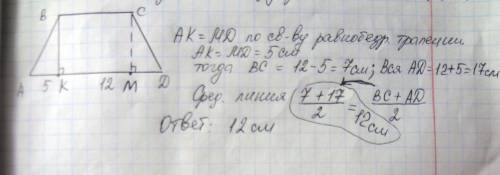 B C
AK = MD по св-ву равнобедр. трапеции
AK = MD = 5 см
тогда BC = 12-5 = 7см; Вся AD = 12+5 = 17см
A 5 K 12 M D
Сред. линия 7 + 17 / 2 = 12 см BC + AD / 2
Ответ: 12 см